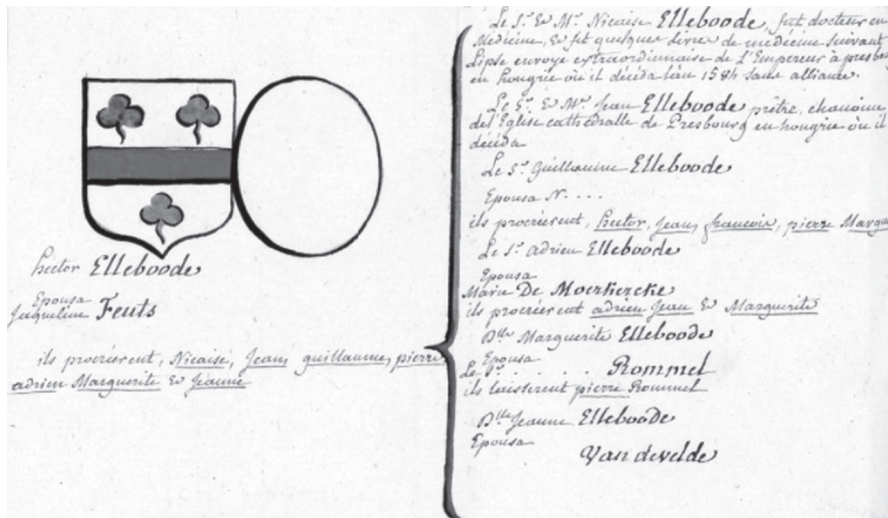 hector Elleboode
Epousa
Jacqueline Feuts
ils procréerent, Nicaise, Jean, guillaume, pierre
adrien Marguerite & Jeanne
Le Sr. & Mr. Nicaise Elleboode, fut docteur en
Medicine, & fit quelques Livre de medicine suivant
Lipse envoye extraordinnaise de L'Empereur à presbo
en hongrie où il décéda l'an 1584 sans alliance.
Le Sr. & Mr. Jean Elleboode prêtre, chanoine
de l'Eglise cathedralle de Presbourg en hongrie où il
décéda
Le Sr. Guillaume Elleboode
Epousa N....
ils procréerent, hector, Jean, francois, pierre Margu
Le Sr. adrien Elleboode
Epousa
Marie De Moerkercke
ils procréerent adrien Jean & Marguerite
Dlle Marguerite Elleboode
Epousa
Le Sr. . . . . . Rommel
ils laisserent pierre Rommel
Dlle Jeanne Elleboode
Epousa
Van develde